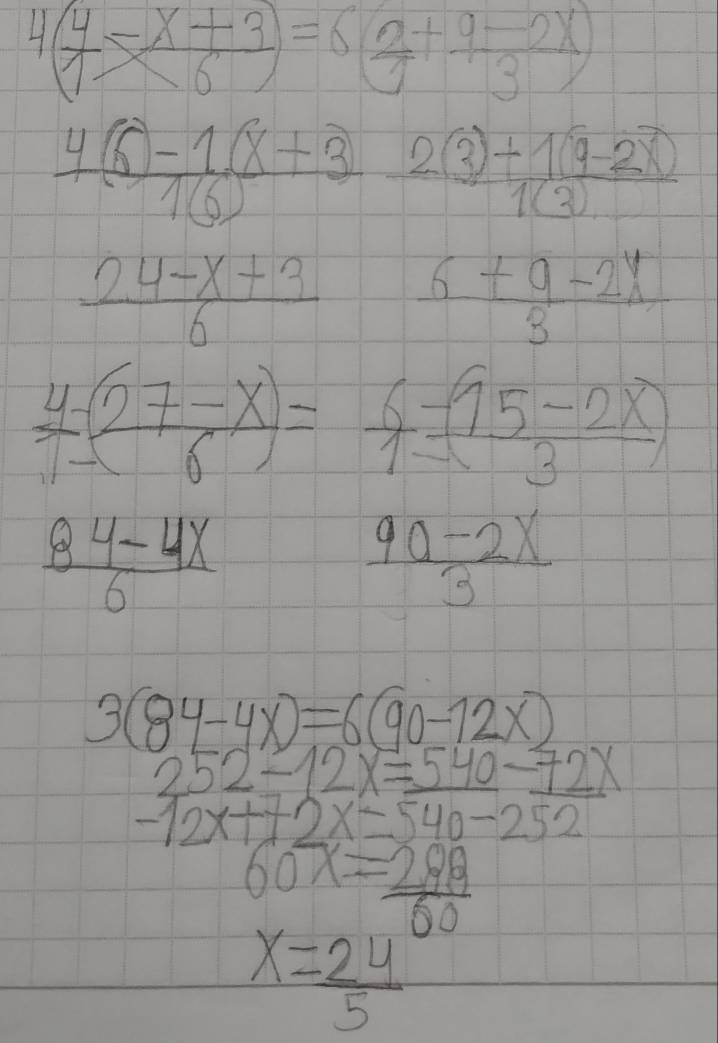 4(4/1 - x+3/6) = 6(2/1 + 9-2x/3)
4(6)-1(x+3)/1(6) 2(3)+1(9-2x)/1(3)
24-x+3/6 6+9-2x/3
4/1-(27-x/6) = 6/1-(15-2x/3)
84-4x/6 90-2x/3
3(84-4x)=6(90-12x)
252-12x=540-72x
-12x+72x=540-252
60x=288/60
x=24/5